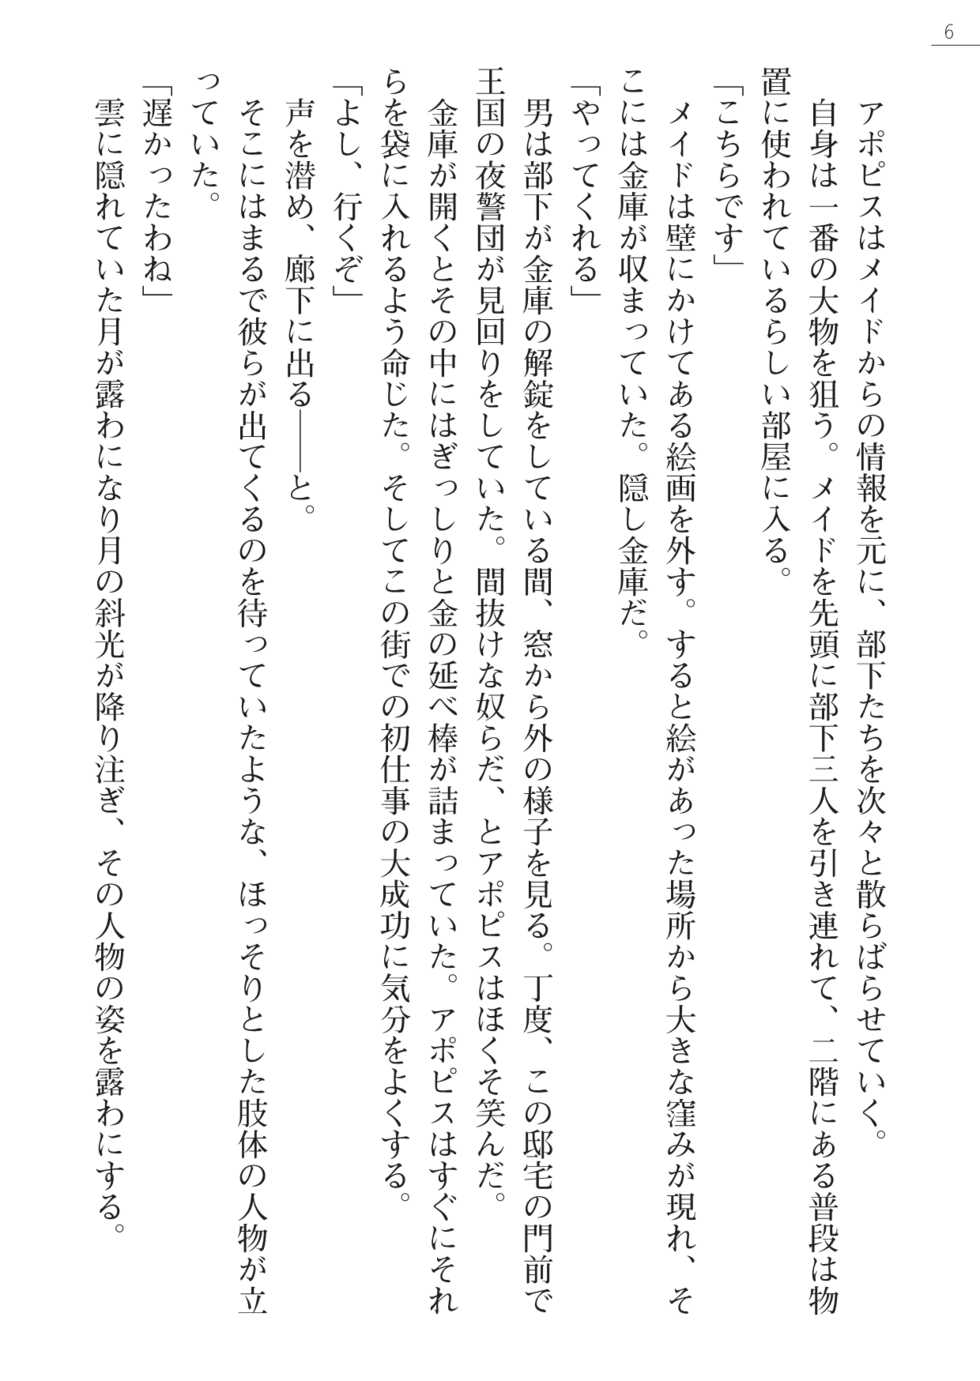 6
　アポピスはメイドからの情報を元に、部下たちを次々と散らばらせていく。
　自身は一番の大物を狙う。メイドを先頭に部下三人を引き連れて、二階にある普段は物
置に使われているらしい部屋に入る。
「こちらです」
　メイドは壁にかけてある絵画を外す。すると絵があった場所から大きな窪みが現れ、そ
こには金庫が収まっていた。隠し金庫だ。
「やってくれる」
　男は部下が金庫の解錠をしている間、窓から外の様子を見る。丁度、この邸宅の門前で
王国の夜警団が見回りをしていた。間抜けな奴らだ、とアポピスはほくそ笑んだ。
　金庫が開くとその中にはぎっしりと金の延べ棒が詰まっていた。アポピスはすぐにそれ
らを袋に入れるよう命じた。そしてこの街での初仕事の大成功に気分をよくする。
「よし、行くぞ」
　声を潜め、廊下に出る――と。
　そこにはまるで彼らが出てくるのを待っていたような、ほっそりとした肢体の人物が立
っていた。
「遅かったわね」
　雲に隠れていた月が露わになり月の斜光が降り注ぎ、その人物の姿を露わにする。